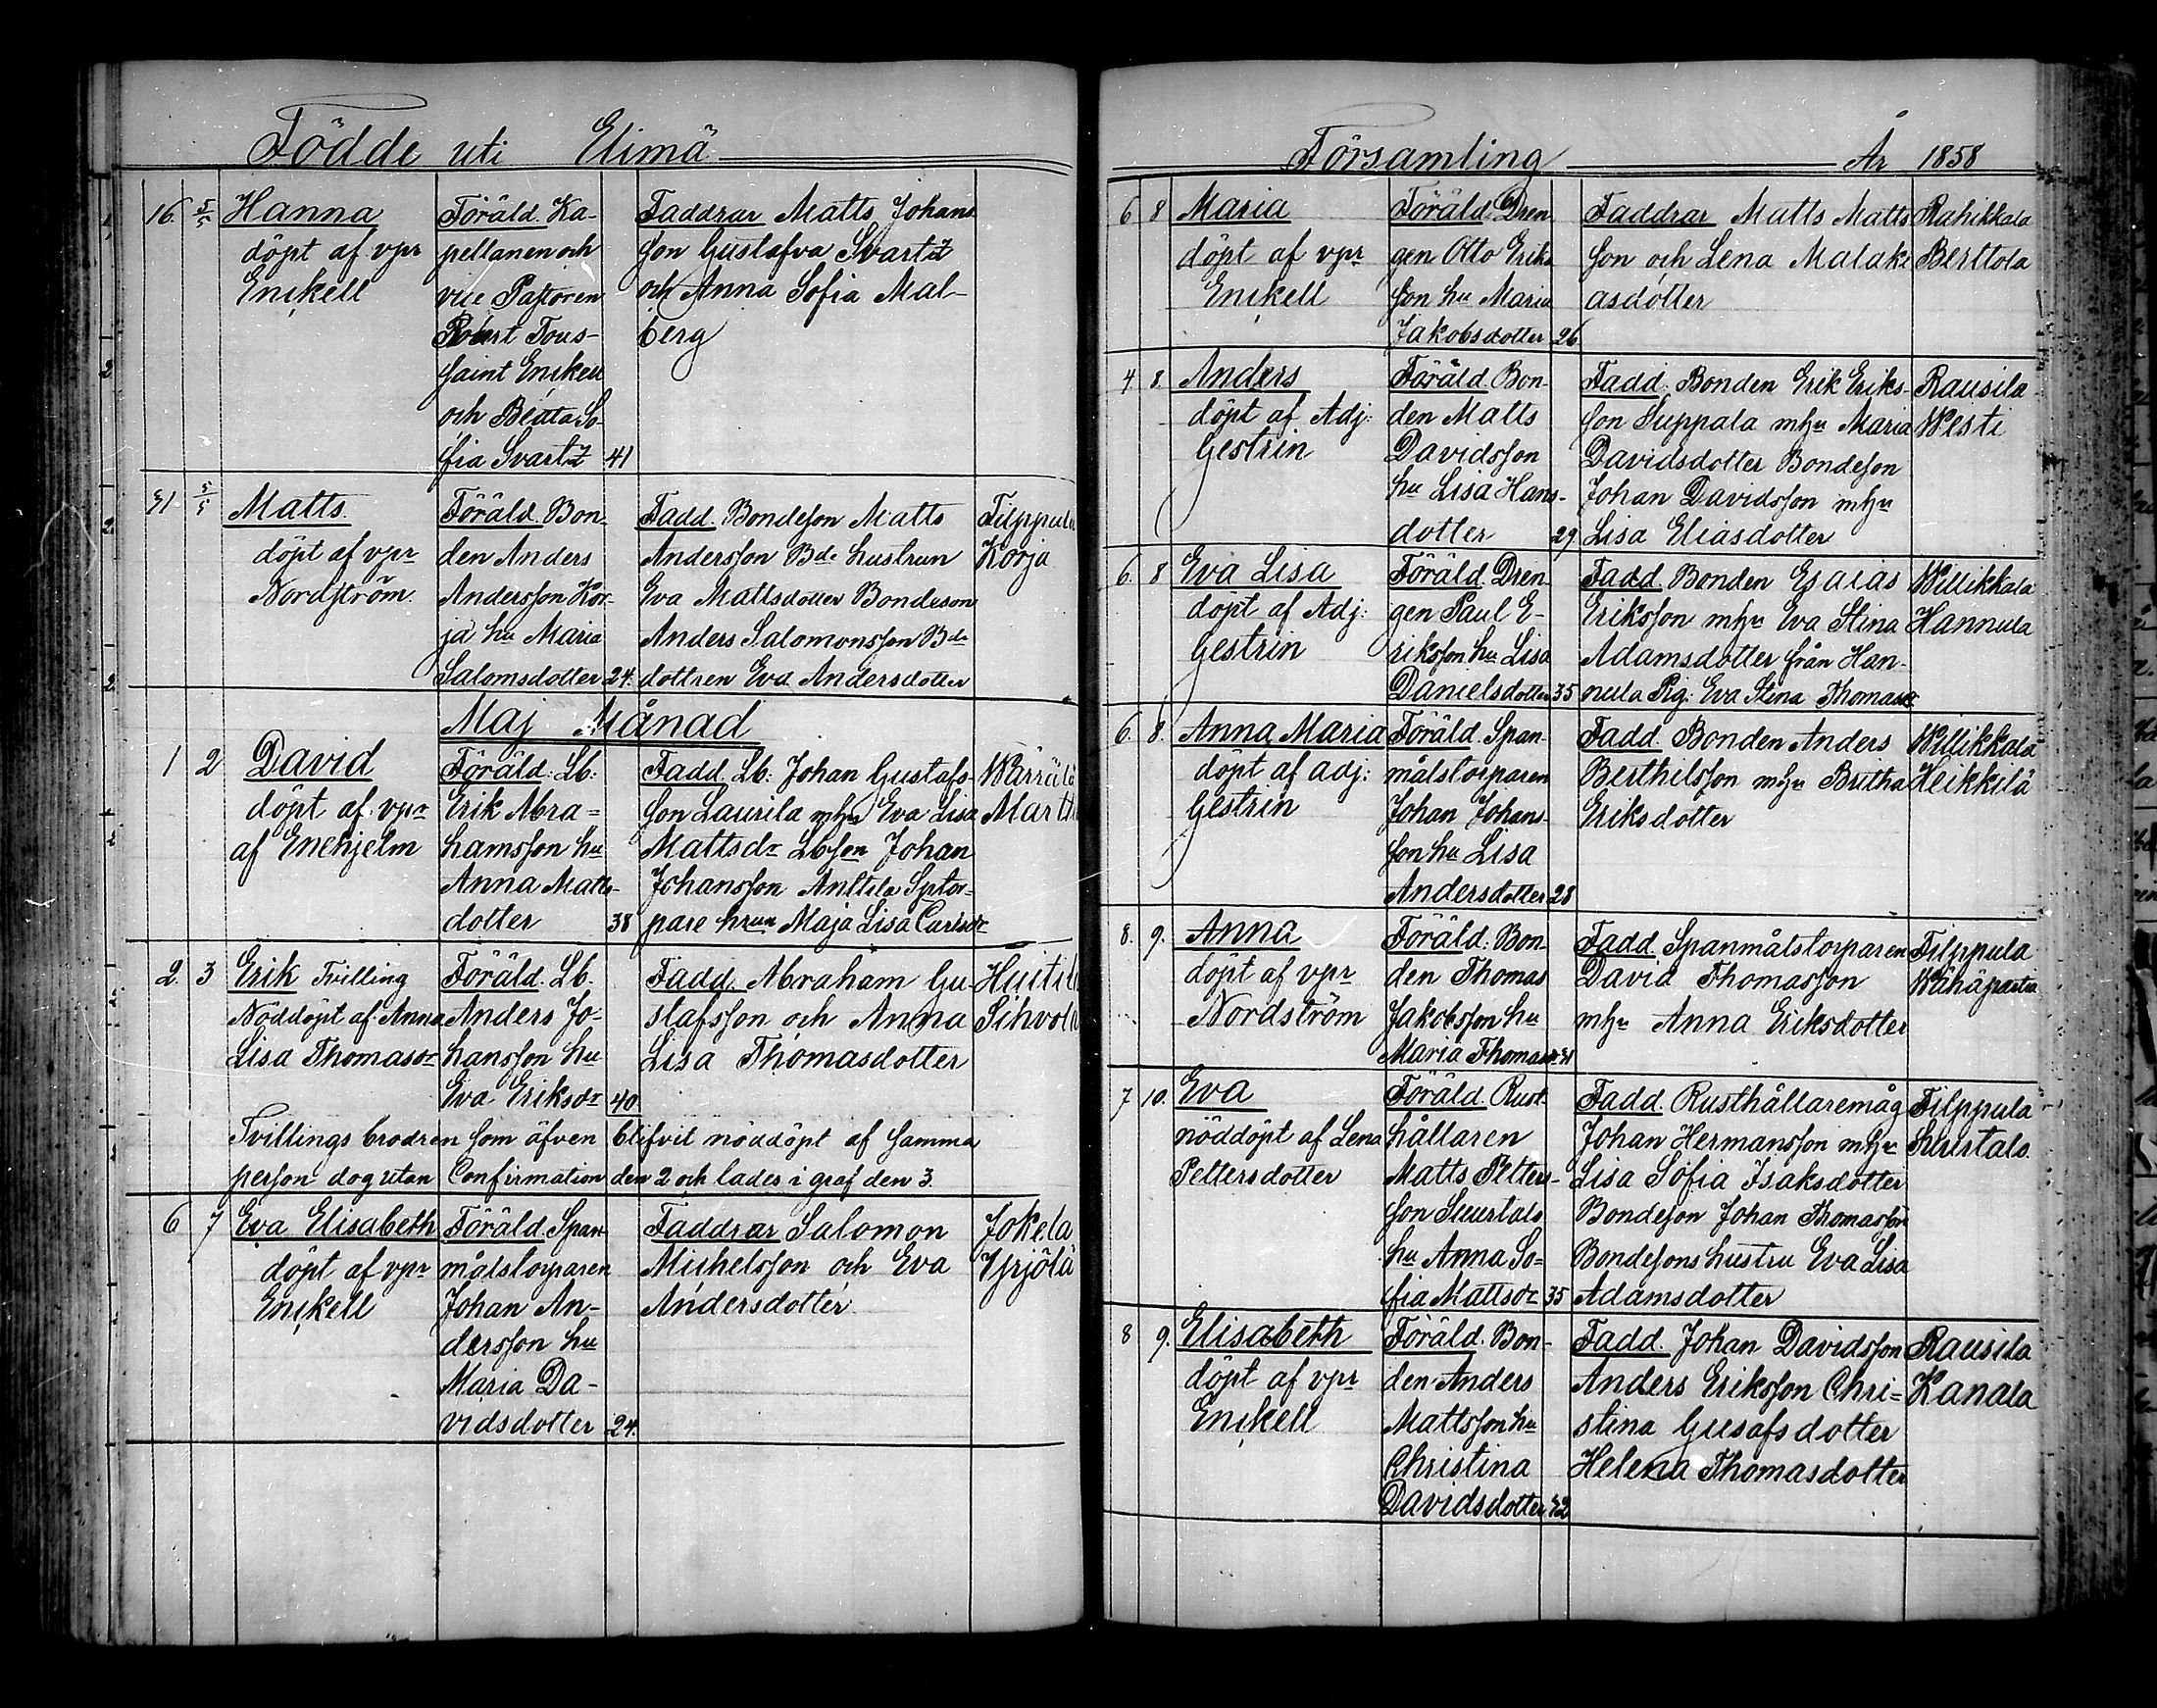 Födde uti Elimä
16. 5/5 Hanna
döpt af vpr
Enckell
Föräld. Ka-
pellanen och
vice Pastoren
Robert Tous-
saint Enckell
och Beata So-
fia Svartz 41
Faddrar Matts Johans
son Gustafva Svartz
och Anna Sofia Mal-
berg
5/5 Matts
döpt af vpr
Nordström
Föräld. Bon-
den Anders
Andersson Kor-
ja hu Maria
Salomsdotter 24.
Fadd. Bondeson Matts
Andersson Bde hustrun
Eva Mattsdotter Bondeson
Anders Salomonsson Bde
dottren Eva Andersdotter
Filppula
Korja
Maj Månad
1 2 David
döpt af vpr
af Enehjelm
Föräld: Lb:
Erik Abra=
hamsson hu
Anna Matts-
dotter 38
Fadd. Lb: Johan Gustafs-
son Laurila mhu Eva Lisa
Mattsdr Lbson Johan
Johansson Anttila Sptor-
pare hrun Maja Lisa Carlsdr
Wärrälä
Martti
2. 3 Erik Tvilling
Nöddöpt af Anna
Lisa Thomasdr
Föräld. Lb.
Anders Jo-
hansson hu
Eva Eriksdr 40
Fadd. Abraham Gu-
stafsson och Anna
Lisa Thomasdotter
Huitila
Sihvola
Tvillings brodren som äfven blifvit nöddöpt af samma
person dog utan Confirmation den 2 och lades i graf den 3.
6 7 Eva Elisabeth
döpt af vpr
Enckell
Föräld. Span-
målstorparen
Johan An-
dersson hu
Maria Da-
vidsdotter 24.
Faddrar Salomon
Michelsson och Eva
Andersdotter
Jokela
Yrjölä
Församling År 1858
6 8 Maria
döpt af vpr
Enckell
Föräld. Dren
gen Otto Eriks
son hu Maria
Jakobsdotter 26
Faddrar Matts Matts
son och Lena Malaki
asdotter
Rahikkala
Berttola
4. 8. Anders
döpt af Adj:
Gestrin
Föräld. Bon-
den Matts
Davidsson
hu Lisa Hans-
dotter 29
Fadd. Bonden Erik Eriks-
son Suppala mhu Maria
Davidsdotter Bondeson
Johan Davidsson mhu
Lisa Eliasdotter
Rausila
Westi
6. 8 Eva Lisa
döpt af Adj:
Gestrin
Föräld. Dren
gen Paul E-
riksson hu Lisa
Danielsdotter 35
Fadd. Bonden Esaias
Eriksson mhu Eva Stina
Adamsdotter från Han-
nula Pig: Eva Stina Thomasdr
Willikkala
Hannula
6. 8. Anna Maria
döpt af adj:
Gestrin
Föräld. Span-
målstorparen
Johan Johans-
son hu Lisa
Andersdotter 28
Fadd. Bonden Anders
Berthilsson mhu Britha
Eriksdotter
Willikkala
Heikkilä
8. 9. Anna
döpt af vpr
Nordström
Föräld: Bon-
den Thomas
Jakobsson hu
Maria Thomasdr
Fadd. Spanmålstorparen
David Thomasson
mhu Anna Eriksdotter
Filppula
7 10. Eva
nöddöpt af Lena
Pettersdotter
Föräld. Rust-
hållaren
Matts Petters-
son
hu Anna So=
fia Mattsdr 35
Fadd. Rusthållaremåg
Johan Hermansson mhu
Lisa Sofia Isaksdotter
Bondeson Johan Thomasson
Bondesons hustru Eva Lisa
Adamsdotter
Filppula
8 9. Elisabeth
döpt af vpr
Enckell
Föräld. Bon-
den Anders
Mattsson hu
Christina
Davidsdotter
Fadd. Johan Davidsson
Anders Eriksson Chri=
stina Gusafsdotter
Helena Thomasdotter
Rausila
Kanala